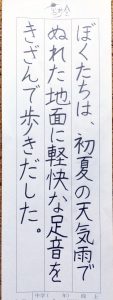 ぼくたちは、初夏の天気雨で
ぬれた地面に軽快な足音を
きざんで歩きだした。
中学（　年）